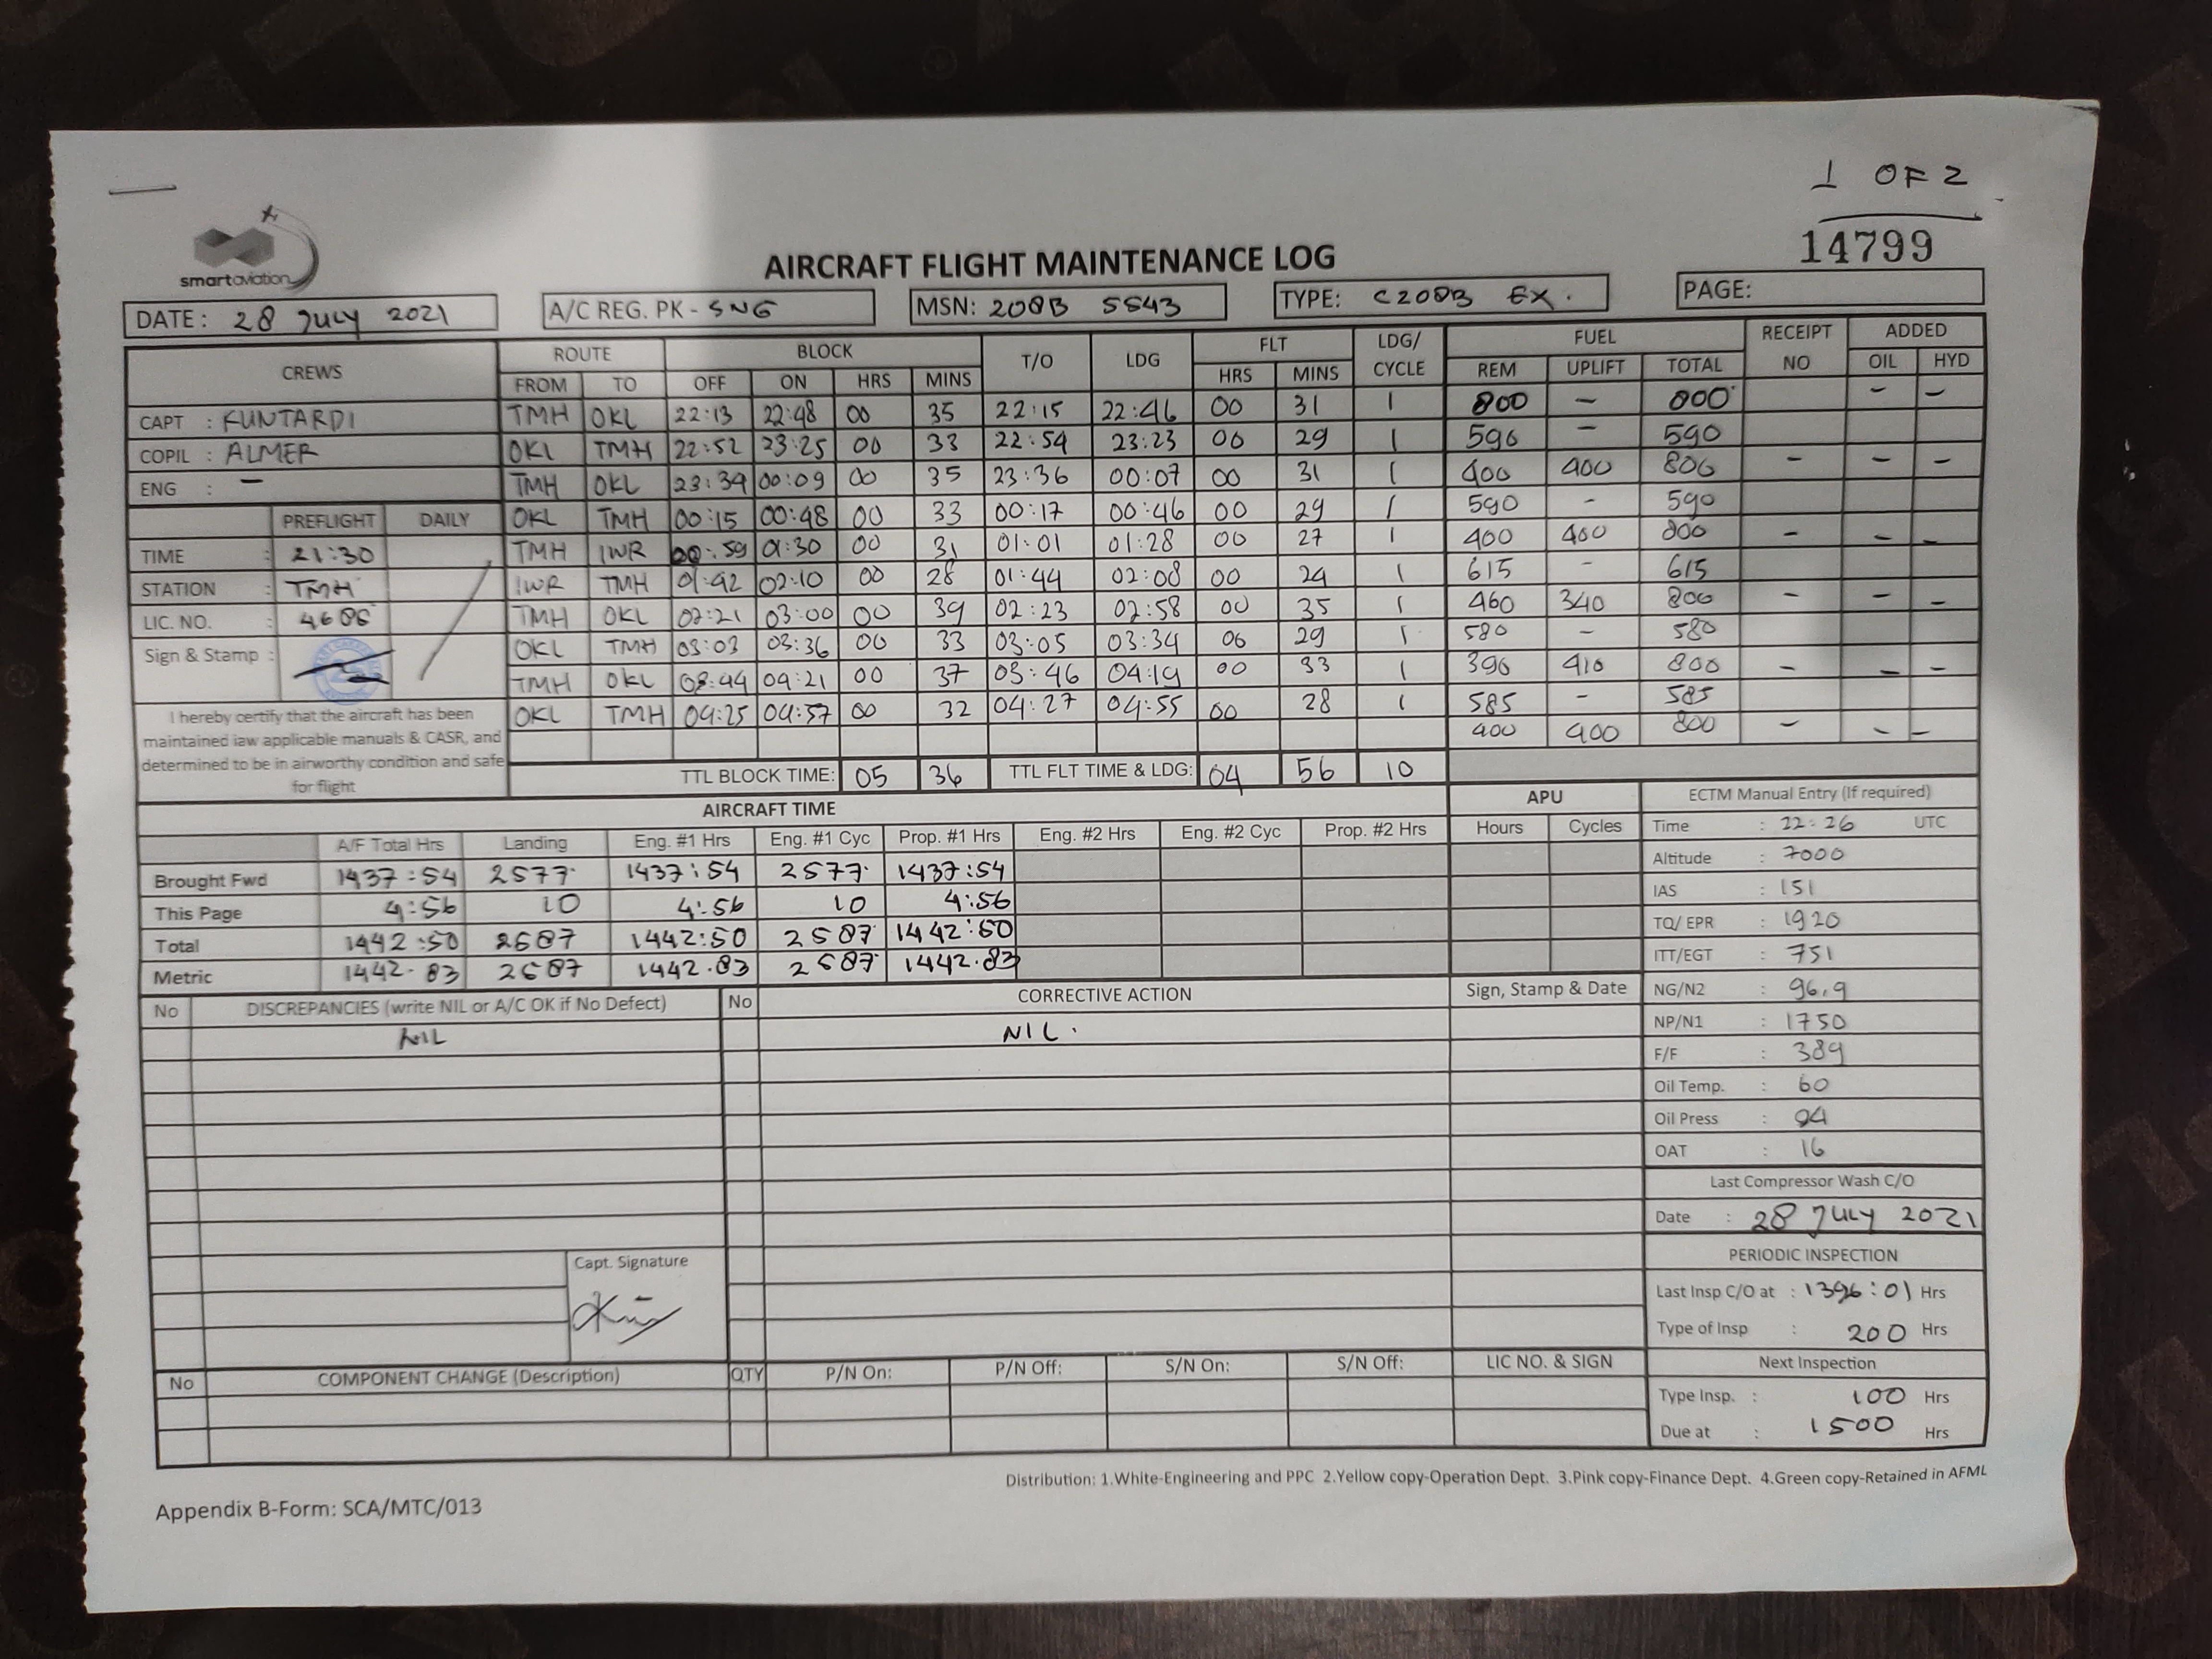 1 OF 2
14799
smartaviation
AIRCRAFT FLIGHT MAINTENANCE LOG
DATE: 28 JULY 2021 A/C REG. PK - SNG MSN: 208B 5543 TYPE: C208B EX. PAGE:
CREWS ROUTE BLOCK T/O LDG FLT LDG/ CYCLE FUEL RECEIPT NO ADDED
FROM TO OFF ON HRS MINS HRS MINS REM UPLIFT TOTAL OIL HYD
CAPT : KUNTARDI TMH OKL 22:13 22:48 00 35 22:15 22:46 00 31 1 800 - 800 - -
COPIL : ALMER OKL TMH 22:52 23:25 00 33 22:54 23:23 00 29 1 590 - 590
ENG : - TMH OKL 23:34 00:09 00 35 23:36 00:07 00 31 1 400 400 800 - - -
PREFLIGHT DAILY OKL TMH 00:15 00:48 00 33 00:17 00:46 00 29 1 590 - 590
TIME : 21:30 TMH IWR 00:59 01:30 00 31 01:01 01:28 00 27 1 400 400 800 - - -
STATION : TMH IWR TMH 01:42 02:10 00 28 01:44 02:08 00 24 1 615 - 615
LIC. NO. : TMH OKL 02:21 03:00 00 39 02:23 02:58 00 35 1 460 340 800 - - -
Sign & Stamp : OKL TMH 03:03 03:36 00 33 03:05 03:34 00 29 1 580 - 580
TMH OKL 03:44 04:21 00 37 03:46 04:19 00 33 1 390 410 800 - - -
OKL TMH 04:25 04:57 00 32 04:27 04:55 00 28 1 585 - 585
400 400 800 - - -
I hereby certify that the aircraft has been
maintained iaw applicable manuals & CASR, and
determined to be in airworthy condition and safe
for flight
TTL BLOCK TIME: 05 36 TTL FLT TIME & LDG: 04 56 10
AIRCRAFT TIME APU ECTM Manual Entry (If required)
A/F Total Hrs Landing Eng. #1 Hrs Eng. #1 Cyc Prop. #1 Hrs Eng. #2 Hrs Eng. #2 Cyc Prop. #2 Hrs Hours Cycles Time : 22:26 UTC
Brought Fwd 1437:54 2577 1437:54 2577 1437:54 Altitude : 7000
This Page 4:56 10 4:56 10 4:56 IAS : 151
Total 1442:50 2587 1442:50 2587 1442:50 TQ/ EPR : 1920
Metric 1442.83 2587 1442.83 2587 1442.83 ITT/EGT : 751
No DISCREPANCIES (write NIL or A/C OK if No Defect) No CORRECTIVE ACTION Sign, Stamp & Date NG/N2 : 96.9
NIL NIL. NP/N1 : 1750
F/F : 389
Oil Temp. : 60
Oil Press : 94
OAT : 16
Last Compressor Wash C/O
Date : 28 JULY 2021
PERIODIC INSPECTION
Capt. Signature
Last Insp C/O at : 1396:01 Hrs
Type of Insp : 200 Hrs
No COMPONENT CHANGE (Description) QTY P/N On: P/N Off: S/N On: S/N Off: LIC NO. & SIGN Next Inspection
Type Insp. : 100 Hrs
Due at : 1500 Hrs
Distribution: 1.White-Engineering and PPC 2.Yellow copy-Operation Dept. 3.Pink copy-Finance Dept. 4.Green copy-Retained in AFML
Appendix B-Form: SCA/MTC/013